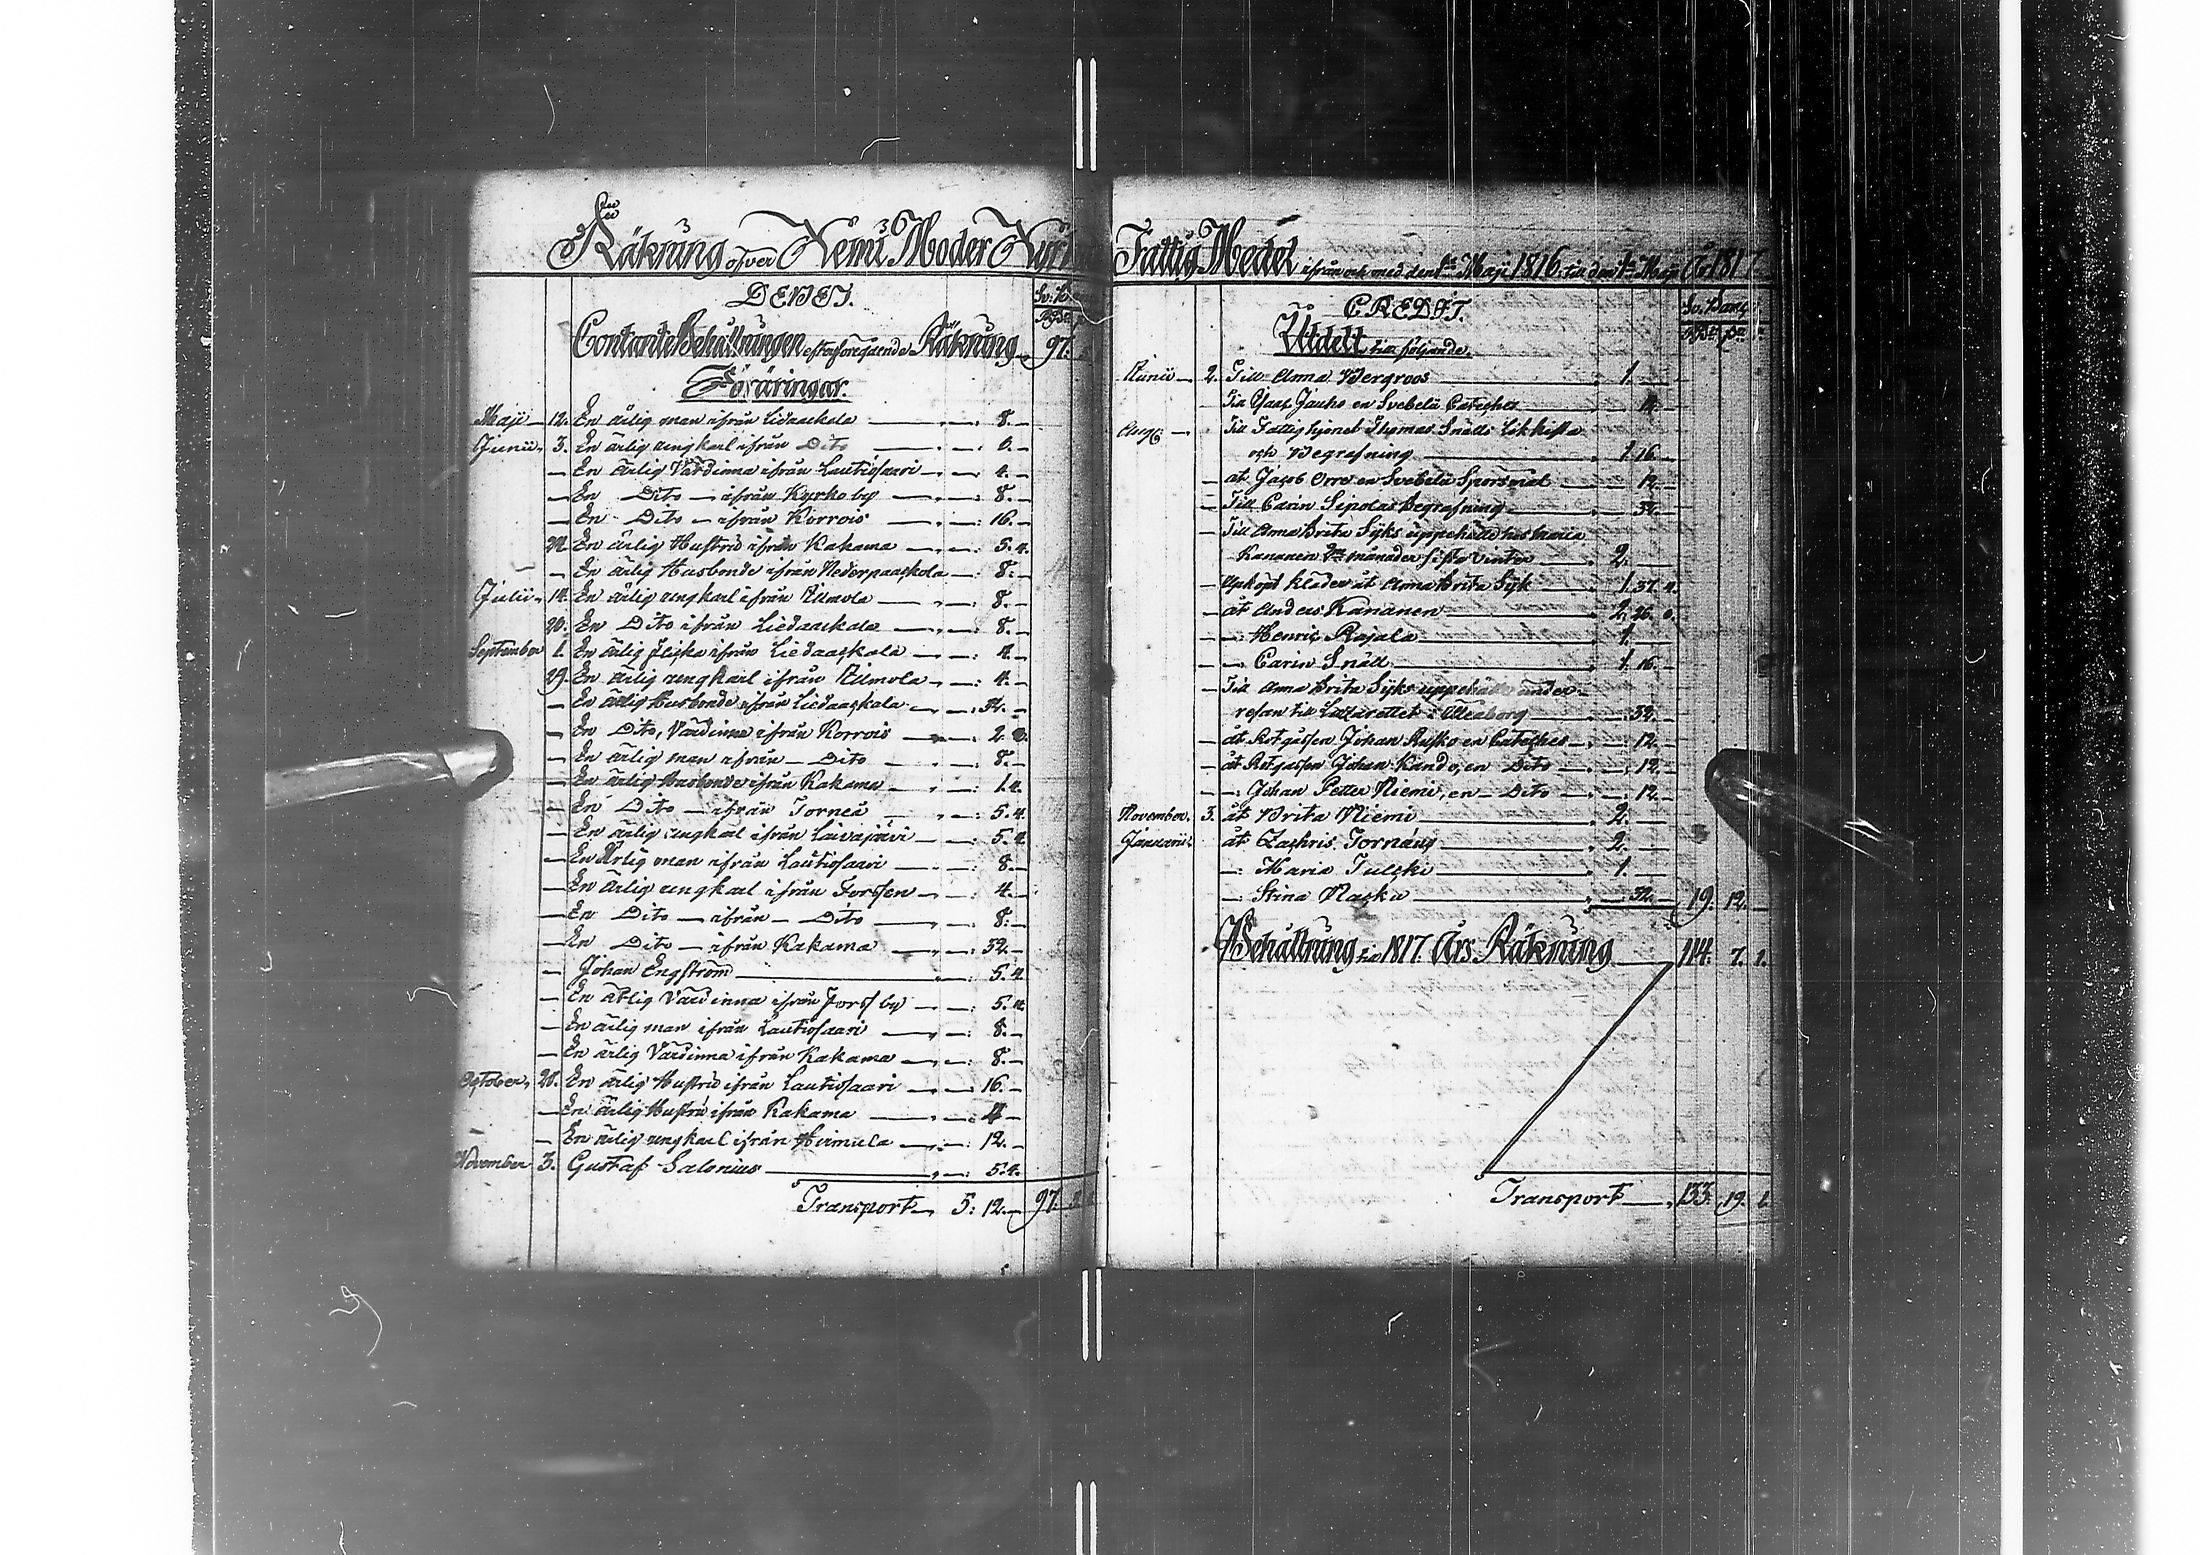 Räkning öfver Kemi Moder Kyr
DEBET.
Sv: B
Contante Behållningen efter föregående Räkning 97.
Föräringar.
Maji 12. En ärlig man ifrån Lidaackala 8.
Junii 3. En ärlig ungkarl ifrån Dito
En ärlig Värdinna ifrån Lautiosaari 4.
En Dito ifrån Kyrkoby 8.
En Dito ifrån Korrois 16.
En ärlig Hustru ifrån Kakama 5. 4.
En ärlig Husbonde ifrån Nederpaackola 8.
Julii 14. En ärlig ungkarl ifrån Ilmola 8.
20. En Dito ifrån Liedaackala 8.
September 1. En ärlig flicka ifrån Liedaackala 4.
29. En ärlig ungkarl ifrån Ilmola 4.
En ärlig Husbonde ifrån Liedaackala
En Dito, Värdinna ifrån Korrois 2.
En ärlig man ifrån Dito 8.
En ärlig Husbonde ifrån Kakama 1. 4.
En Dito ifrån Torneå 5. 4.
En ärlig ungkarl ifrån Laivajärvi 5. 4.
En Ärlig man ifrån Lautiosaari 8.
En ärlig ungkarl ifrån Forssen 4.
En Dito ifrån Dito 8.
En Dito ifrån Kakama 32.
Johan Engström 5. 4.
En ärlig Värdinna ifrån Forssby 5. 4.
En ärlig man ifrån Lautiosaari 8.
En ärlig Värdinna ifrån Kakama 8.
October, 20. En ärlig Hustru ifrån Lautiosaari 16.
En ärlig Hustru ifrån Kakama 4
En ärlig ungkarl ifrån Hirmula 12.
November 3. Gustaf Salonius 5. 4.
Transport 5: 12. 97.
Fattig Medel ifrån och med den 1sta Maji 1816. till den 1sta Maji År 1817
CREDIT.
Sv. Banco
Utdelt till följande.
Junii 2. Till Anna Bergroos 1.
Till Isaac Jauho en Svebelii Cateches
Aug: Till Fattighjonet Thomas Snälls likkista
och Begrafning 1. 16.
åt Jacob Orre en Svebelii Spörsmål 12.
Till Carin Sipolas Begrafning 32.
Till Anna Brita Syks uppehälle hos Maria
Kananen månader sista vinter 2.
Upköpt kläder åt Anna Brita Syk 1. 37. 4.
åt Anders Kananen 2. 26.
Henric Rajala 1.
Carin Snäll 1. 16.
Till Anna Brita Syks uppehälle under
resan till Lazarettet i Uleåborg 32.
åt Rotgossen Johan Rusko en Cateches 12.
åt Rotgossen Johan Kando, en Dito 12.
Johan Petter Niemi, en Dito 12.
November. 3. åt Brita Niemi 2.
Januarii. åt Zachris Tornæus 2.
Maria Tulcki 1.
Stina Nacka 32. 19. 12.
Behållning till 1817. Års Räkning 114. 7. 1.
Transport 133. 19. 1.